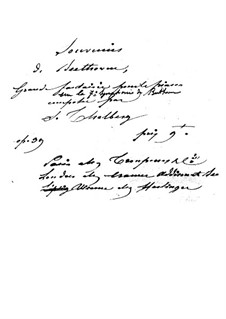 Souvenirs
de Beethoven,
Grande fantaisie pour le piano
sur la 7e Symphonie de Beethoven
composée par
S. Thalberg
op. 39 prix 9f
Paris chez Troupenas & Cie
Londres chez Cramer Addison & Beale
Vienne chez Haslinger